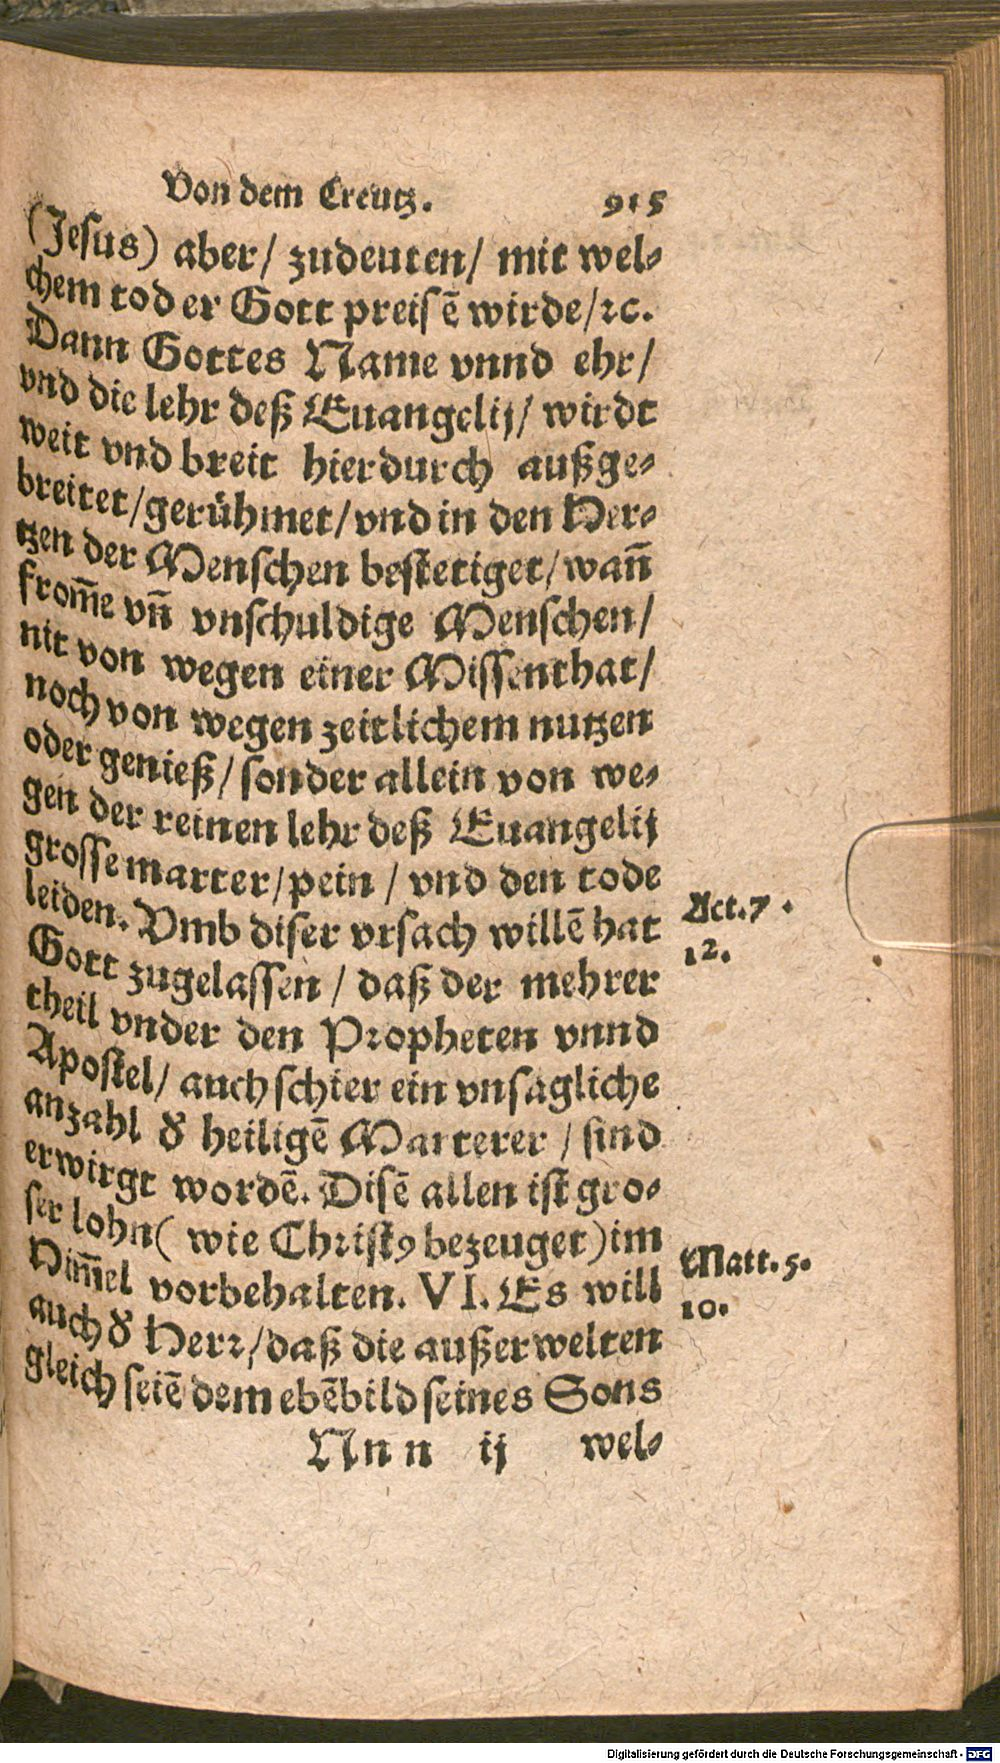 Von dem Creutz. 915
(Jesus) aber/ zudeuten/ mit wel⸗
chem tod er Gott preisẽ wirde/ꝛc.
Dann Gottes Name vnnd ehr/
vnd die lehr deß Euangelij/ wirdt
weit vnd breit hierdurch außge⸗
breitet/gerühmet/vnd in den Her⸗
tzen der Menschen bestetiget/wañ
from̃e vñ vnschuldige Menschen/
nit von wegen einer Missenthat/
noch von wegen zeitlichem nutzen
oder genieß/sonder allein von we⸗
gen der reinen lehr deß Euangelij
grosse marter/pein / vnd den tode
leiden. Vmb diser vrsach willẽ hat
Act. 7.
Gott zugelassen / daß der mehrer
12.
theil vnder den Propheten vnnd
Apostel/ auch schier ein vnsagliche
anzahl d' heiligẽ Marterer / sind
erwirgt wordẽ. Disẽ allen ist gro⸗
ser lohn( wie Christꝰ bezeuget)im
Matt. 5.
Him̃el vorbehalten. VI. Es will
10.
auch d' Herꝛ/daß die außerwelten
gleich seiẽ dem ebẽbild seines Sons
Nnn ij wel⸗
Digitalisierung gefördert durch die Deutsche Forschungsgemeinschaft - DFG